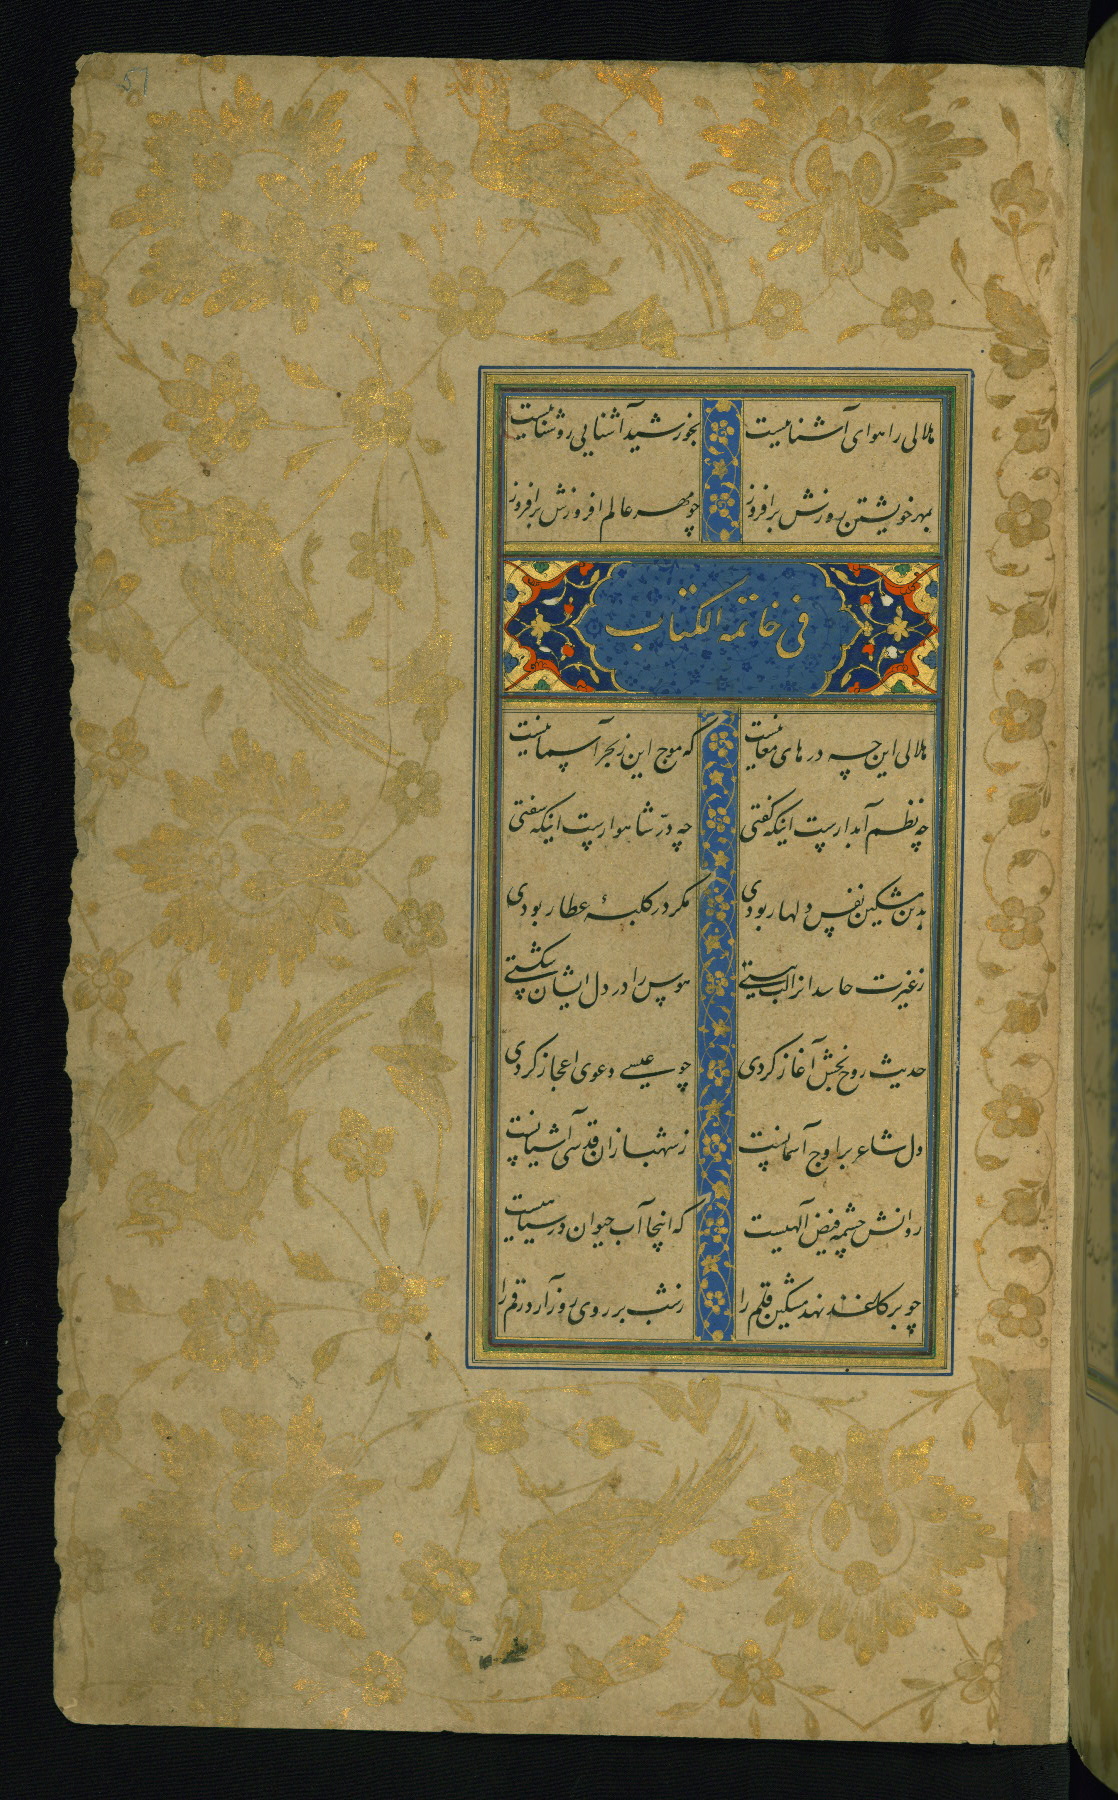 51
هلالی را هوای آشناییست بخورشید آشنایی روشناییست
بمهر خویشتن روزش برافروز چو مهر عالم افروزش برافروز
فی خاتمة الکتاب
هلالی این چه درهای معانیست که موج این ز بحر آسمانیست
چه نظم آبدارست اینکه گفتی چه درّ شاهوارست اینکه سفتی
بدین مشکین نفس دلها ربودی مکر در کلبهٔ عطار بودی
ز غیرت حاسدانرا لب ببستی هوس را در دل ایشان شکستی
حدیث روح بخش آغاز کردی چو عیسی دعوی اعجاز کردی
دل شاعر بر اوج آسمانیست ز شهبازان قدسی آشیانیست
روانش چشمه فیض الهیست که اینجا آب حیوان در سیاهیست
چو بر کاغذ نهد مشکین قلم را ز شب بر روی روز آرد رقم را